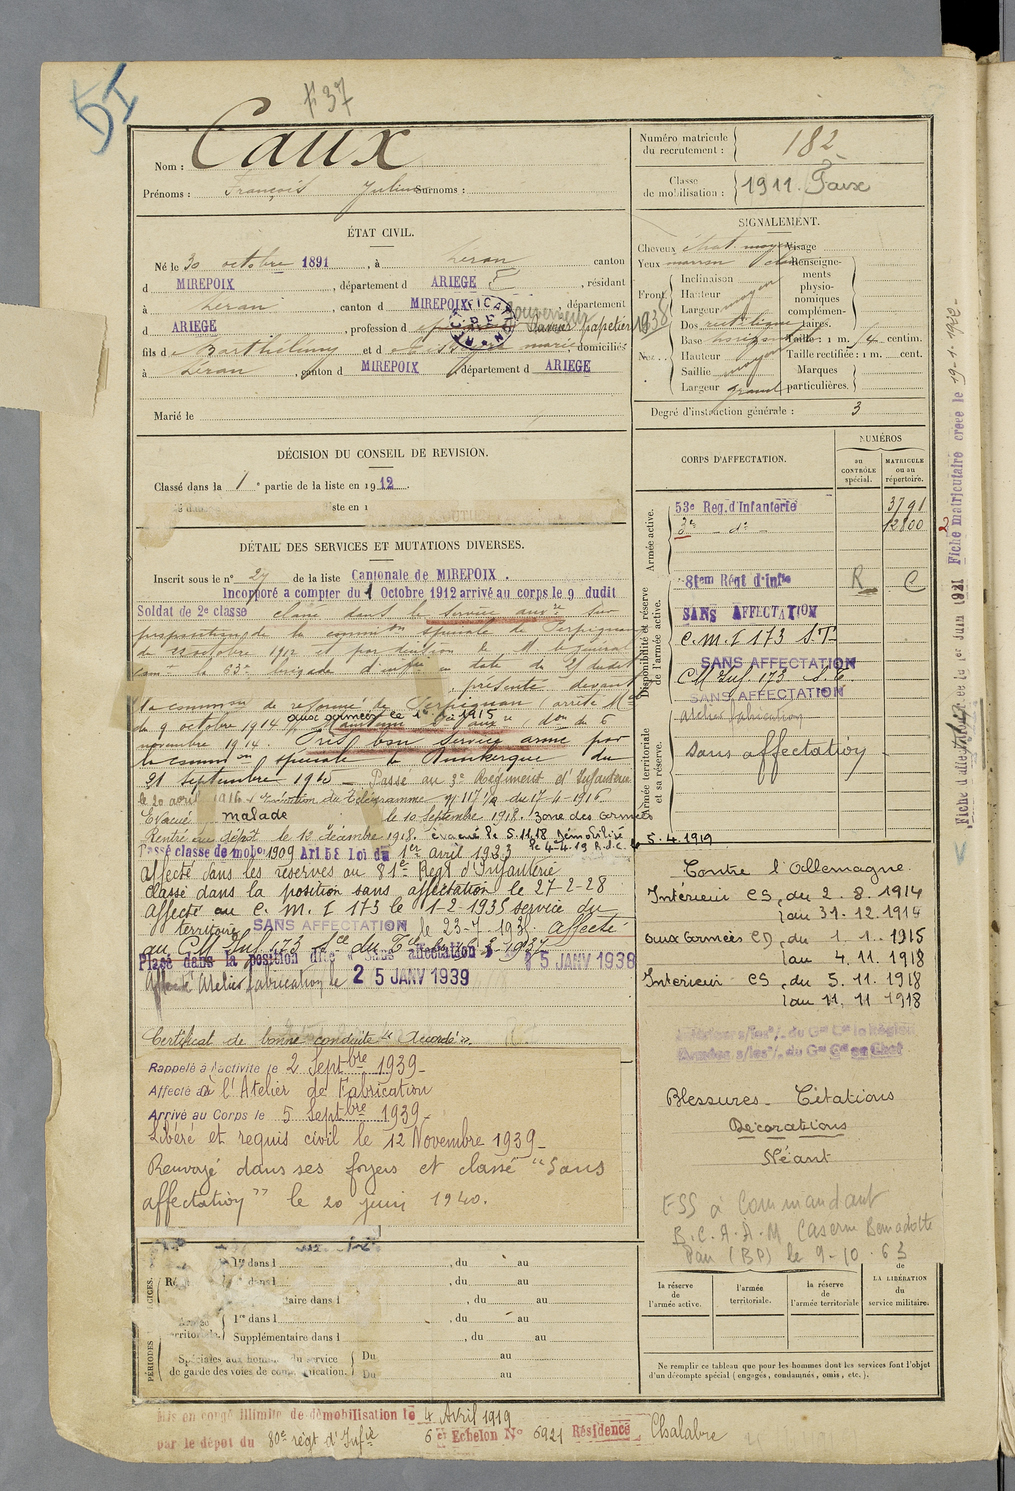 51
F 37
Nom : Caux
Prénoms : François Julien Surnoms :
ÉTAT CIVIL.
Né le 30 octobre 1891, à Léran canton
d MIREPOIX, département d ARIEGE, résidant
à Léran, canton d MIREPOIX, département
d ARIEGE, profession d papetier 1938
fils de Barthélemy et d marie, domiciliés
à Léran, canton d MIREPOIX département d ARIEGE
Marié le
DÉCISION DU CONSEIL DE REVISION.
Classé dans la 1e partie de la liste en 1912.
DÉTAIL DES SERVICES ET MUTATIONS DIVERSES.
Inscrit sous le n° 27 de la liste Cantonale de MIREPOIX.
Incorporé a compter du 1 Octobre 1912 arrivé au corps le 9 dudit
Soldat de 2e classe classé dans le service auxre sur
proposition de la commion spéciale de Perpignan
du 12 octobre 1912 et par décision de M le général
comt la 63e brigade d'infrie en date du 21 dudit
présenté devant
la commion de réforme de Perpignan (arrêté Mel
du 9 octobre 1914 Maintenu Sce auxre (don du 6
aux armées le 1er 1915
novembre 1914. Pris bon service armé par
la commion spéciale de Dunkerque du
21 septembre 1915 - Passé au 3e Régiment d'Infanterie
le 20 avril 1916 Exécution du Télégramme 91117 1/4 du 17-4-1916
Evacué malade le 10 septembre 1918. Zone des armées
Rentré au dépôt le 12 décembre 1918. évacué le 5.11.18 Démobilisé
le 4-4-19 R.d.C. le 5.4.1919
Passé classe de mobon 1909 Art 58 Loi du 1er avril 1923
affecté dans les réserves au 81e Regt d'Infanterie
classé dans la position sans affectation le 27-2-28
Affecté au C. M. I 173 le 1-2-1935 service du
territoire SANS AFFECTATION le 23-7-193. affecté
au CM Inf. 173 Sce du Tre le 1937
Placé dans la position dite "Sans affectation" 5 JANV 1938
Affecté Atelier fabrication le 25 JANV 1939
Certificat de bonne conduite "Accordé".
Rappelé à l'activité le 2 Septbre 1939-
Affecté à l'Atelier de Fabrication
Arrivé au Corps le 5 Septbre 1939-
Libéré et requis civil le 12 Novembre 1939-
Renvoyé dans ses foyers et classé "Sans
affectation" le 20 juin 1940.
PÉRIODES
1re dans l , du au
dans l , du au
taire dans l , du au
1re dans l , du au
Supplémentaire dans l , du au
Spéciales aux hommes du service
de garde des voies de communication.
Du au
Du au
Mis en congé illimité de démobilisation le 4 Avril 1919
par le dépôt du 80e régt d'Infie 6e Echelon N° 6921 Résidence Chalabre
Numéro matricule
du recrutement : 182
Classe
de mobilisation : 1911. Foix
SIGNALEMENT.
Cheveux chat. moyen Visage
Yeux marron clair Renseigne-
ments
physio-
nomiques
complémen-
taires.
Front
Inclinaison
Hauteur moyen
Largeur
Nez..
Dos rectiligne
Base horizontale
Hauteur moyen
Saillie moyen
Largeur grand
Taille : 1 m. 14 centim.
Taille rectifiée : 1 m. cent.
Marques
particulières.
Degré d'instruction générale : 3
CORPS D'AFFECTATION.
NUMÉROS
au
CONTRÔLE
spécial.
MATRICULE
ou au
répertoire.
Armée active.
53e Reg. d'Infanterie 3791
3e - do - 12100
2
Disponibilité et réserve
de l'armée active.
81em Régt d'Infie R C
SANS AFFECTATION
C. M. I 173 S.T-
SANS AFFECTATION
CM Inf. 173 S. T.
SANS AFFECTATION
atelier fabrication
Armée territoriale
et sa réserve.
Sans affectation
Contre l'Allemagne
Intérieur CS, du 2. 8. 1914
au 31. 12. 1914
aux Armées CD, du 1. 1. 1915
au 4. 11. 1918
Interieur CS, du 5. 11. 1918
au 11. 11 1918
Blessures - Citations
Décorations
Néant
ESS à Commandant
B.C.A.A.M Caserne Bernadotte
Pau (BP) le 9-10-63
la réserve
de
l'armée active.
l'armée
territoriale.
la réserve
de
l'armée territoriale
de
LA LIBÉRATION
du
service militaire.
Ne remplir ce tableau que pour les hommes dont les services font l'objet
d'un décompte spécial (engagés, condamnés, omis, etc.).
Fiche matriculaire créée le 19-1-1940-